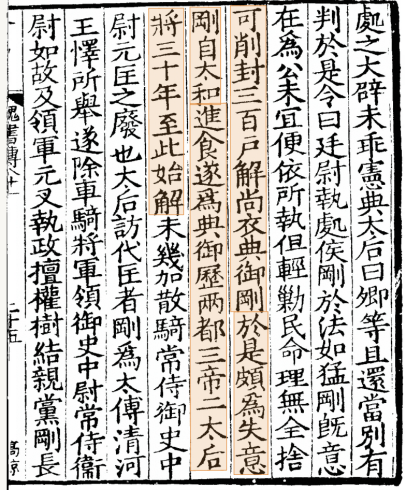 處之大辟未乖憲典太后曰卿等且還當別有
判於是令曰廷尉執處侯剛於法如猛剛旣意
在爲公未宜便依所執但輕勦民命理無全捨
可削封三百戶解尚衣典御剛於是頗爲失意
剛自太和進食遂爲典御歷兩都三帝二太后
將三十年至此始解未幾加散騎常侍御史中
尉元匡之廢也太后訪代匡者剛爲太傅清河
王懌所舉遂除車騎將軍領御史中尉常侍衞
尉如故及領軍元叉執政擅權樹結親黨剛長
魏書傳八十一
二十五
高諒